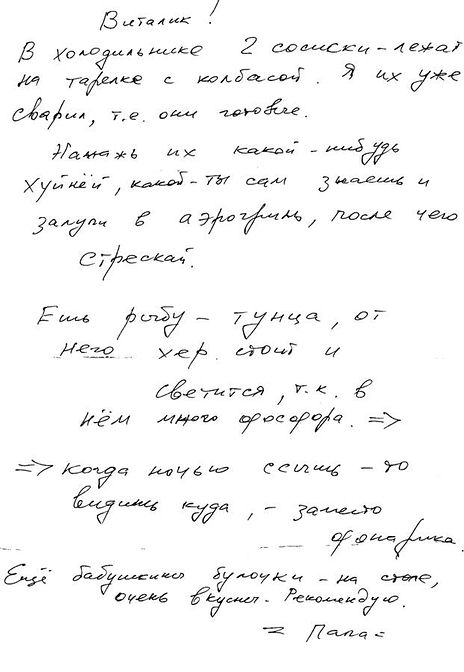 Виталик!
В холодильнике 2 сосиски - лежат
на тарелке с колбасой. Я их уже
сварил, т.е. они готовые.
Намажь их какой-нибудь
хуйнёй, какой-ты сам знаешь и
залупи в аэрогриль, после чего
стрескай.
Ешь рыбу - тунца, от
него хер стоит и
светится, т.к. в
нём много фосфора. =>
=> когда ночью ссышь - то
видишь куда, - заместо
фонарика.
Ещё бабушкины булочки - на столе,
очень вкусные. Рекомендую.
= Папа =